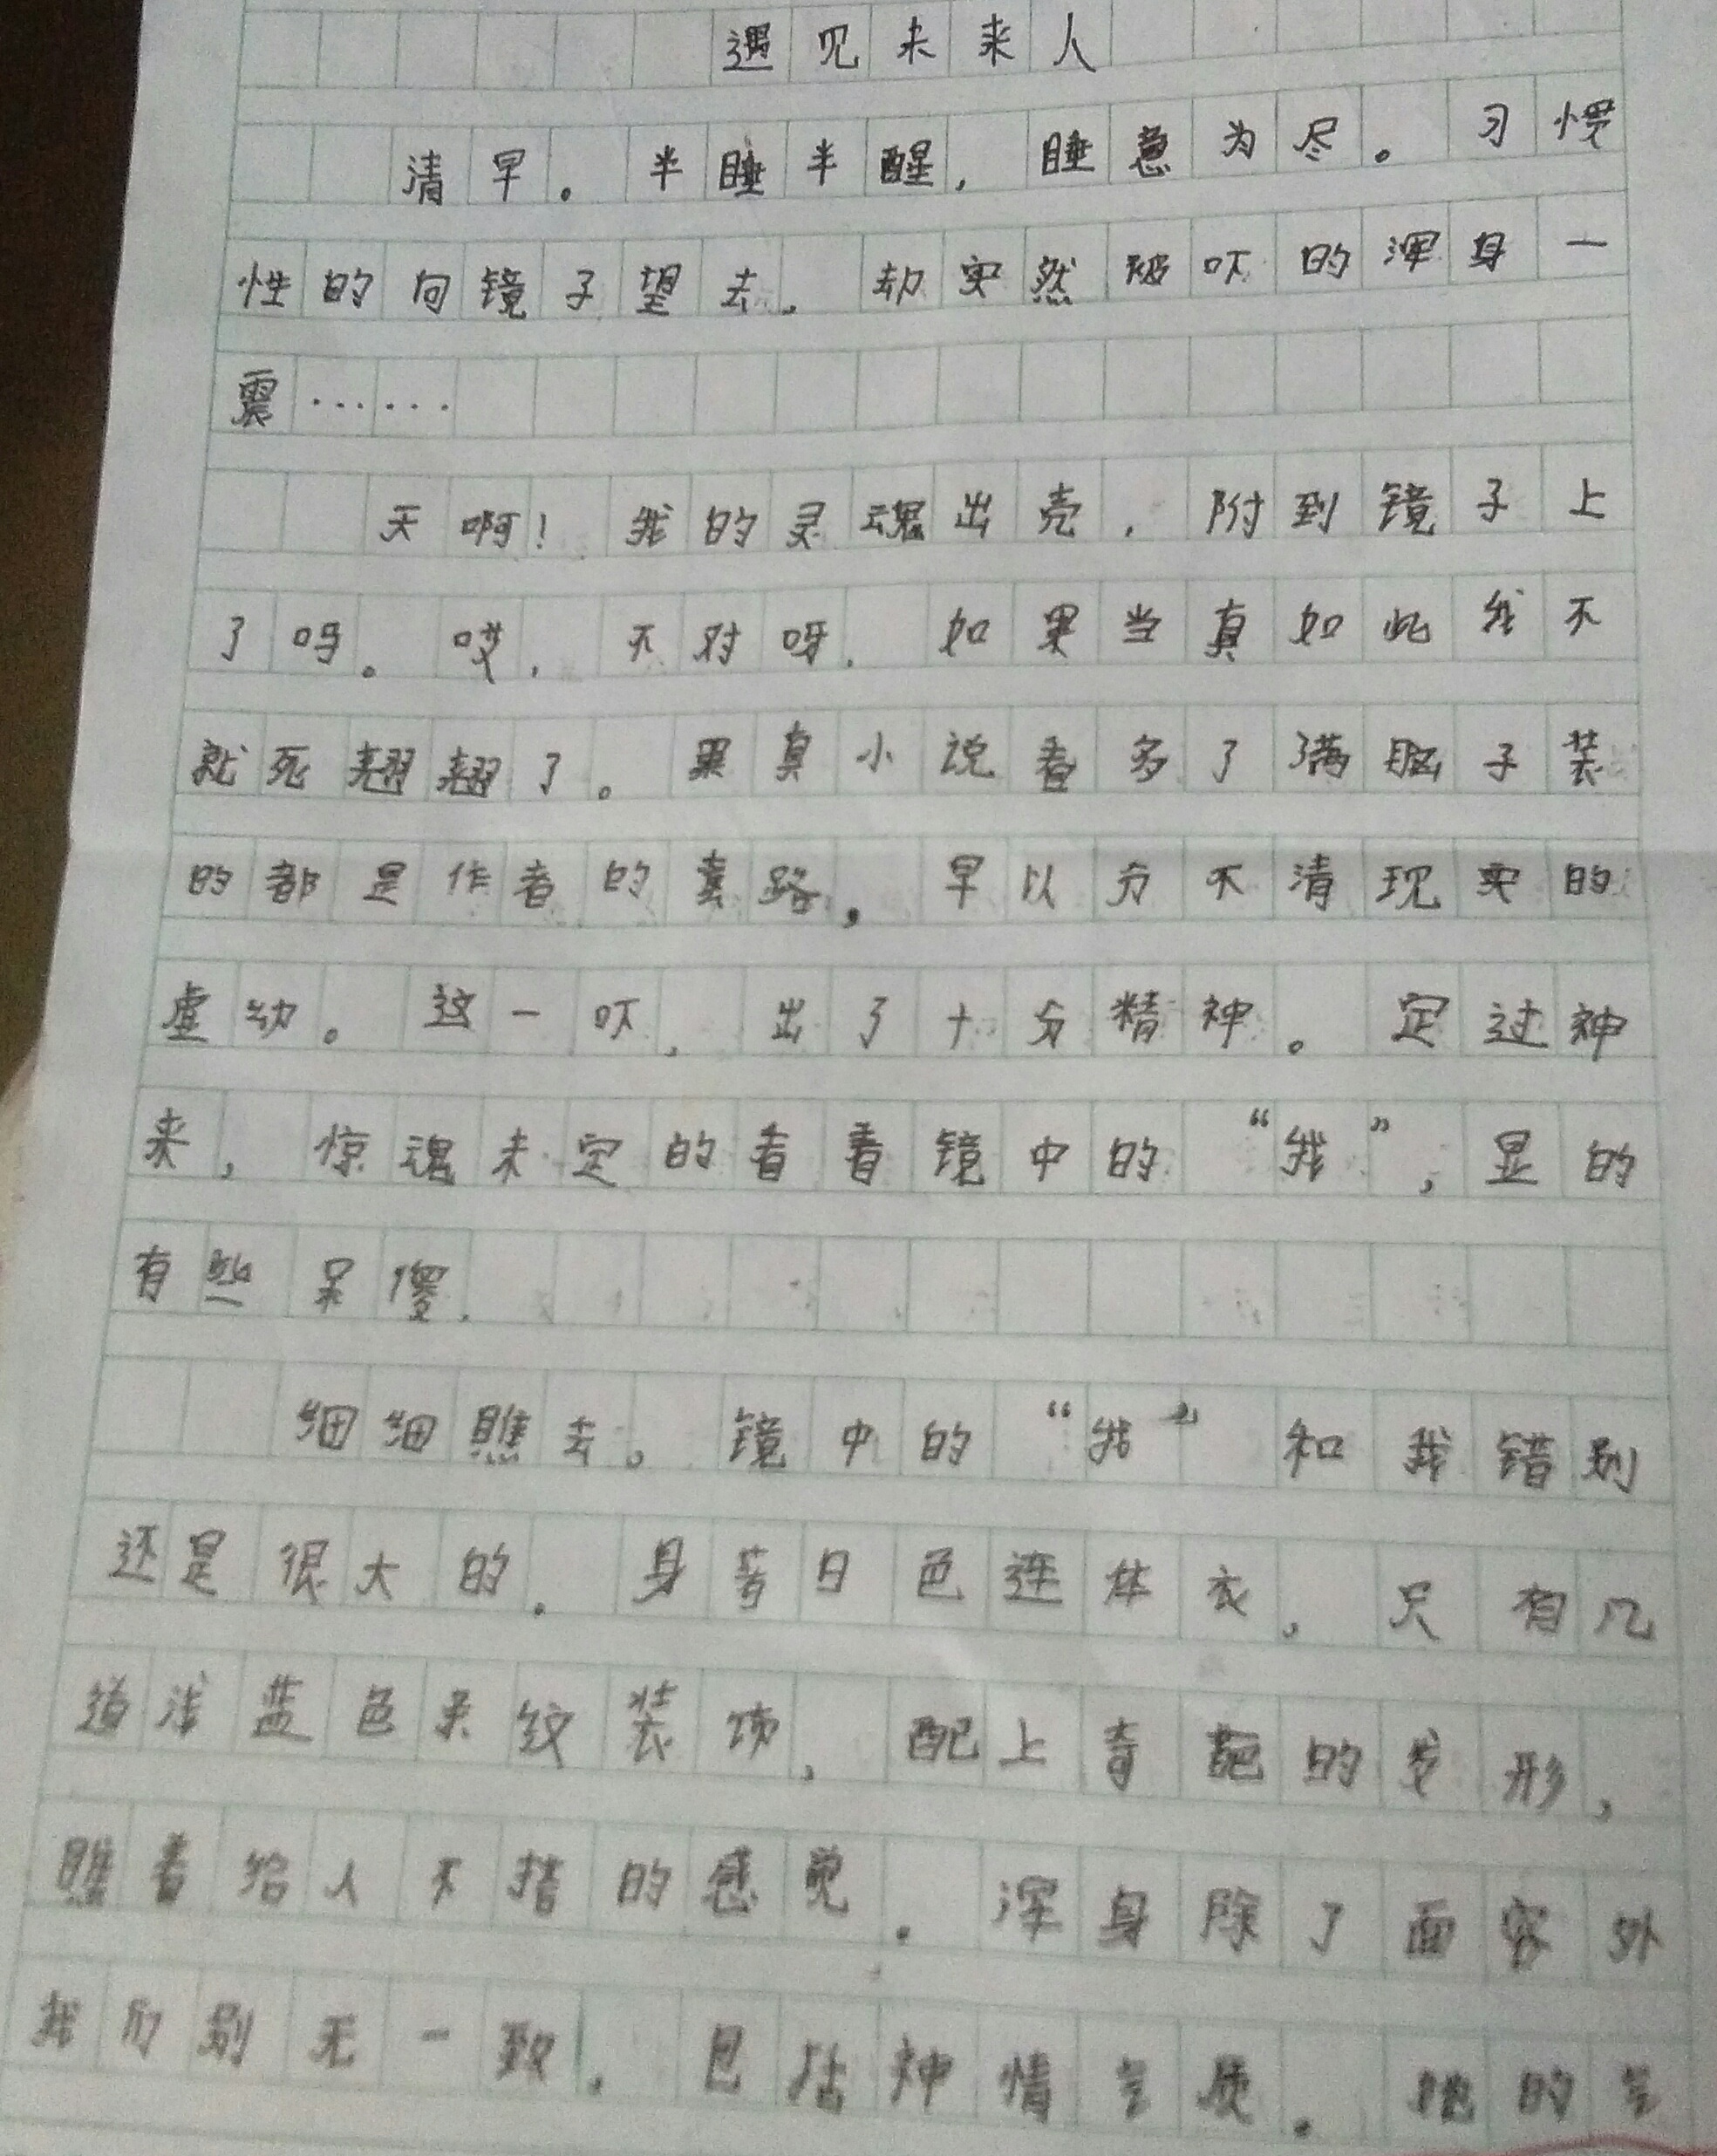 遇见未来人
清早。半睡半醒,睡意为尽。习惯
性的向镜子望去,却突然被吓的浑身一
震……
天啊!我的灵魂出壳,附到镜子上
了吗。哎,不对呀,如果当真如此我不
就死翘翘了。果真小说看多了满脑子装
的都是作者的套路,早以分不清现实的
虚幻。这一吓,出了十分精神。定过神
来,惊魂未定的看着镜中的“我”,显的
有些呆傻.
细细瞧去。镜中的“我”和我错别
还是很大的.身着白色连体衣,只有几
道浅蓝色条纹装饰,配上奇葩的发形,
瞧着给人不搭的感觉.浑身除了面容外
我们别无一致.包括神情气质.她的气